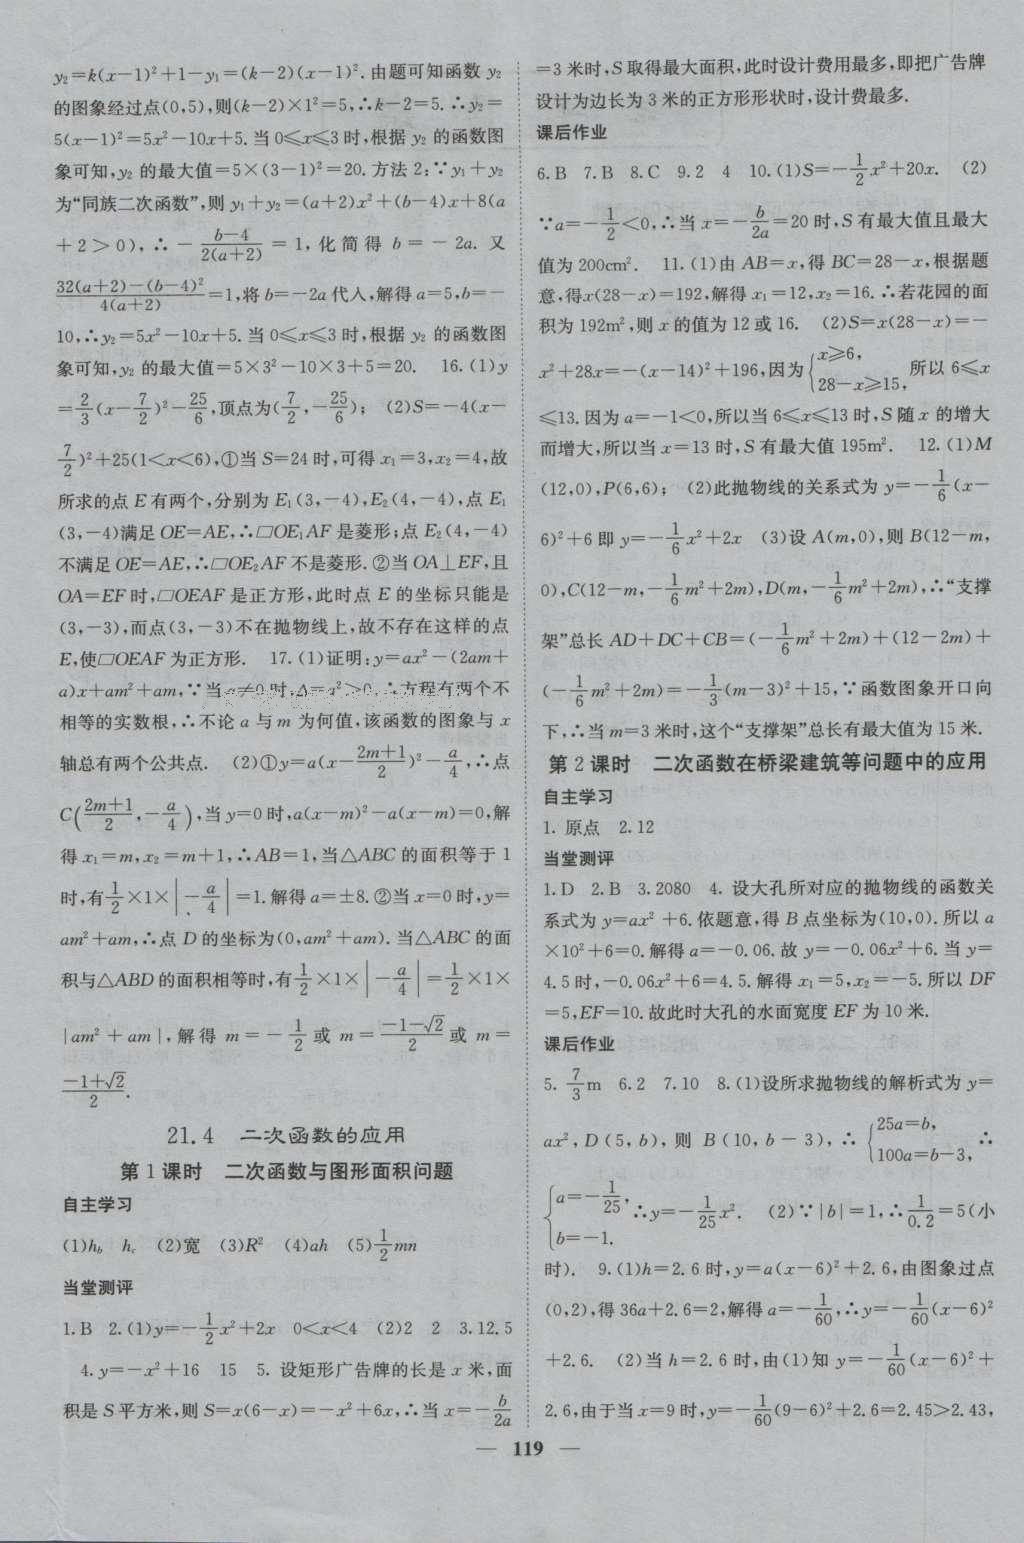 y₂=k(x-1)²+1-y₁=(k-2)(x-1)².由题可知函数 y₂
的图象经过点(0,5),则(k-2)×1²=5,∴k-2=5.∴y₂=
5(x-1)²=5x²-10x+5.当 0≤x≤3 时,根据 y₂ 的函数图
象可知,y₂ 的最大值=5×(3-1)²=20.方法 2:∵y₁+y₂
为“同族二次函数”,则 y₁+y₂=(a+2)x²+(b-4)x+8(a
+2>0),∴-(b-4)/(2(a+2))=1,化简得 b=-2a.又
(32(a+2)-(b-4)²)/(4(a+2))=1,将b=-2a代人,解得a=5,b=-
10,∴y₂=5x²-10x+5.当 0≤x≤3 时,根据 y₂ 的函数图
象可知,y₂ 的最大值=5×3²-10×3+5=20. 16.(1)y
=2/3(x-7/2)²-25/6,顶点为(7/2,-25/6); (2)S=-4(x-
7/2)²+25(1<x<6),①当 S=24 时,可得 x₁=3,x₂=4,故
所求的点 E 有两个,分别为 E₁(3,-4),E₂(4,-4),点 E₁
(3,-4)满足 OE=AE,∴▱OE₁AF 是菱形;点 E₂(4,-4)
不满足 OE=AE,∴▱OE₂AF 不是菱形.②当 OA⊥EF,且
OA=EF 时,▱OEAF 是正方形,此时点 E 的坐标只能是
(3,-3),而点(3,-3)不在抛物线上,故不存在这样的点
E,使▱OEAF 为正方形. 17.(1)证明:y=ax²-(2am+
a)x+am²+am,∵当a≠0时,Δ=a²>0,∴方程有两个不
相等的实数根,∴不论 a 与 m 为何值,该函数的图象与 x
轴总有两个公共点. (2)①y=a(x-(2m+1)/2)²-a/4,∴点
C((2m+1)/2,-a/4),当 y=0 时,a(x-m)²-a(x-m)=0,解
得 x₁=m,x₂=m+1,∴AB=1,当△ABC 的面积等于 1
时,有1/2×1×|-a/4|=1.解得 a=±8.②当 x=0 时,y=
am²+am,∴点 D 的坐标为(0,am²+am).当△ABC 的面
积与△ABD 的面积相等时,有1/2×1×|-a/4|=1/2×1×
|am²+am|,解得 m=-1/2或 m=(-1-√2)/2或 m=
(-1+√2)/2.
21.4 二次函数的应用
第 1 课时 二次函数与图形面积问题
自主学习
(1)h_b h_c (2)宽 (3)R² (4)ah (5)1/2mn
当堂测评
1.B 2.(1)y=-1/2x²+2x 0<x<4 (2)2 2 3.12.5
4.y=-x²+16 15 5. 设矩形广告牌的长是 x 米,面
积是 S 平方米,则 S=x(6-x)=-x²+6x,∴当 x=-b/2a
=3 米时,S 取得最大面积,此时设计费用最多,即把广告牌
设计为边长为 3 米的正方形形状时,设计费最多.
课后作业
6.B 7.B 8.C 9.2 4 10.(1)S=-1/2x²+20x. (2)
∵a=-1/2<0,∴当 x=-b/2a=20 时,S 有最大值且最大
值为 200cm². 11.(1)由 AB=x,得 BC=28-x,根据题
意,得x(28-x)=192,解得 x₁=12,x₂=16.∴若花园的面
积为 192m²,则 x 的值为 12 或 16. (2)S=x(28-x)=-
x²+28x=-(x-14)²+196,因为{x≥6, 28-x≥15,所以 6≤x
≤13.因为 a=-1<0,所以当 6≤x≤13 时,S 随 x 的增大
而增大,所以当 x=13 时,S 有最大值 195m². 12.(1)M
(12,0),P(6,6); (2)此抛物线的关系式为 y=-1/6(x-
6)²+6 即 y=-1/6x²+2x (3)设 A(m,0),则 B(12-m,
0),C(12-m,-1/6m²+2m),D(m,-1/6m²+2m),∴“支撑
架”总长 AD+DC+CB=(-1/6m²+2m)+(12-2m)+
(-1/6m²+2m)=-1/3(m-3)²+15,∵函数图象开口向
下,∴当 m=3 米时,这个“支撑架”总长有最大值为 15 米.
第 2 课时 二次函数在桥梁建筑等问题中的应用
自主学习
1. 原点 2.12
当堂测评
1.D 2.B 3.2080 4. 设大孔所对应的抛物线的函数关
系式为 y=ax²+6.依题意,得 B 点坐标为(10,0).所以 a
×10²+6=0.解得 a=-0.06.故 y=-0.06x²+6.当 y=
4.5 时,-0.06x²+6=4.5.解得 x₁=5,x₂=-5.所以 DF
=5,EF=10.故此时大孔的水面宽度 EF 为 10 米.
课后作业
5. 7/3m 6.2 7.10 8.(1)设所求抛物线的解析式为 y=
ax²,D(5,b),则 B(10,b-3),∴{25a=b, 100a=b-3,∴
{a=-1/25, b=-1.∴y=-1/25x². (2)∵|b|=1,∴1/0.2=5(小
时). 9.(1)h=2.6 时,y=a(x-6)²+2.6,由图象过点
(0,2),得 36a+2.6=2,解得 a=-1/60,∴y=-1/60(x-6)²
+2.6. (2)当 h=2.6 时,由(1)知 y=-1/60(x-6)²+
2.6,由于当 x=9 时,y=-1/60(9-6)²+2.6=2.45>2.43,
— 119 —